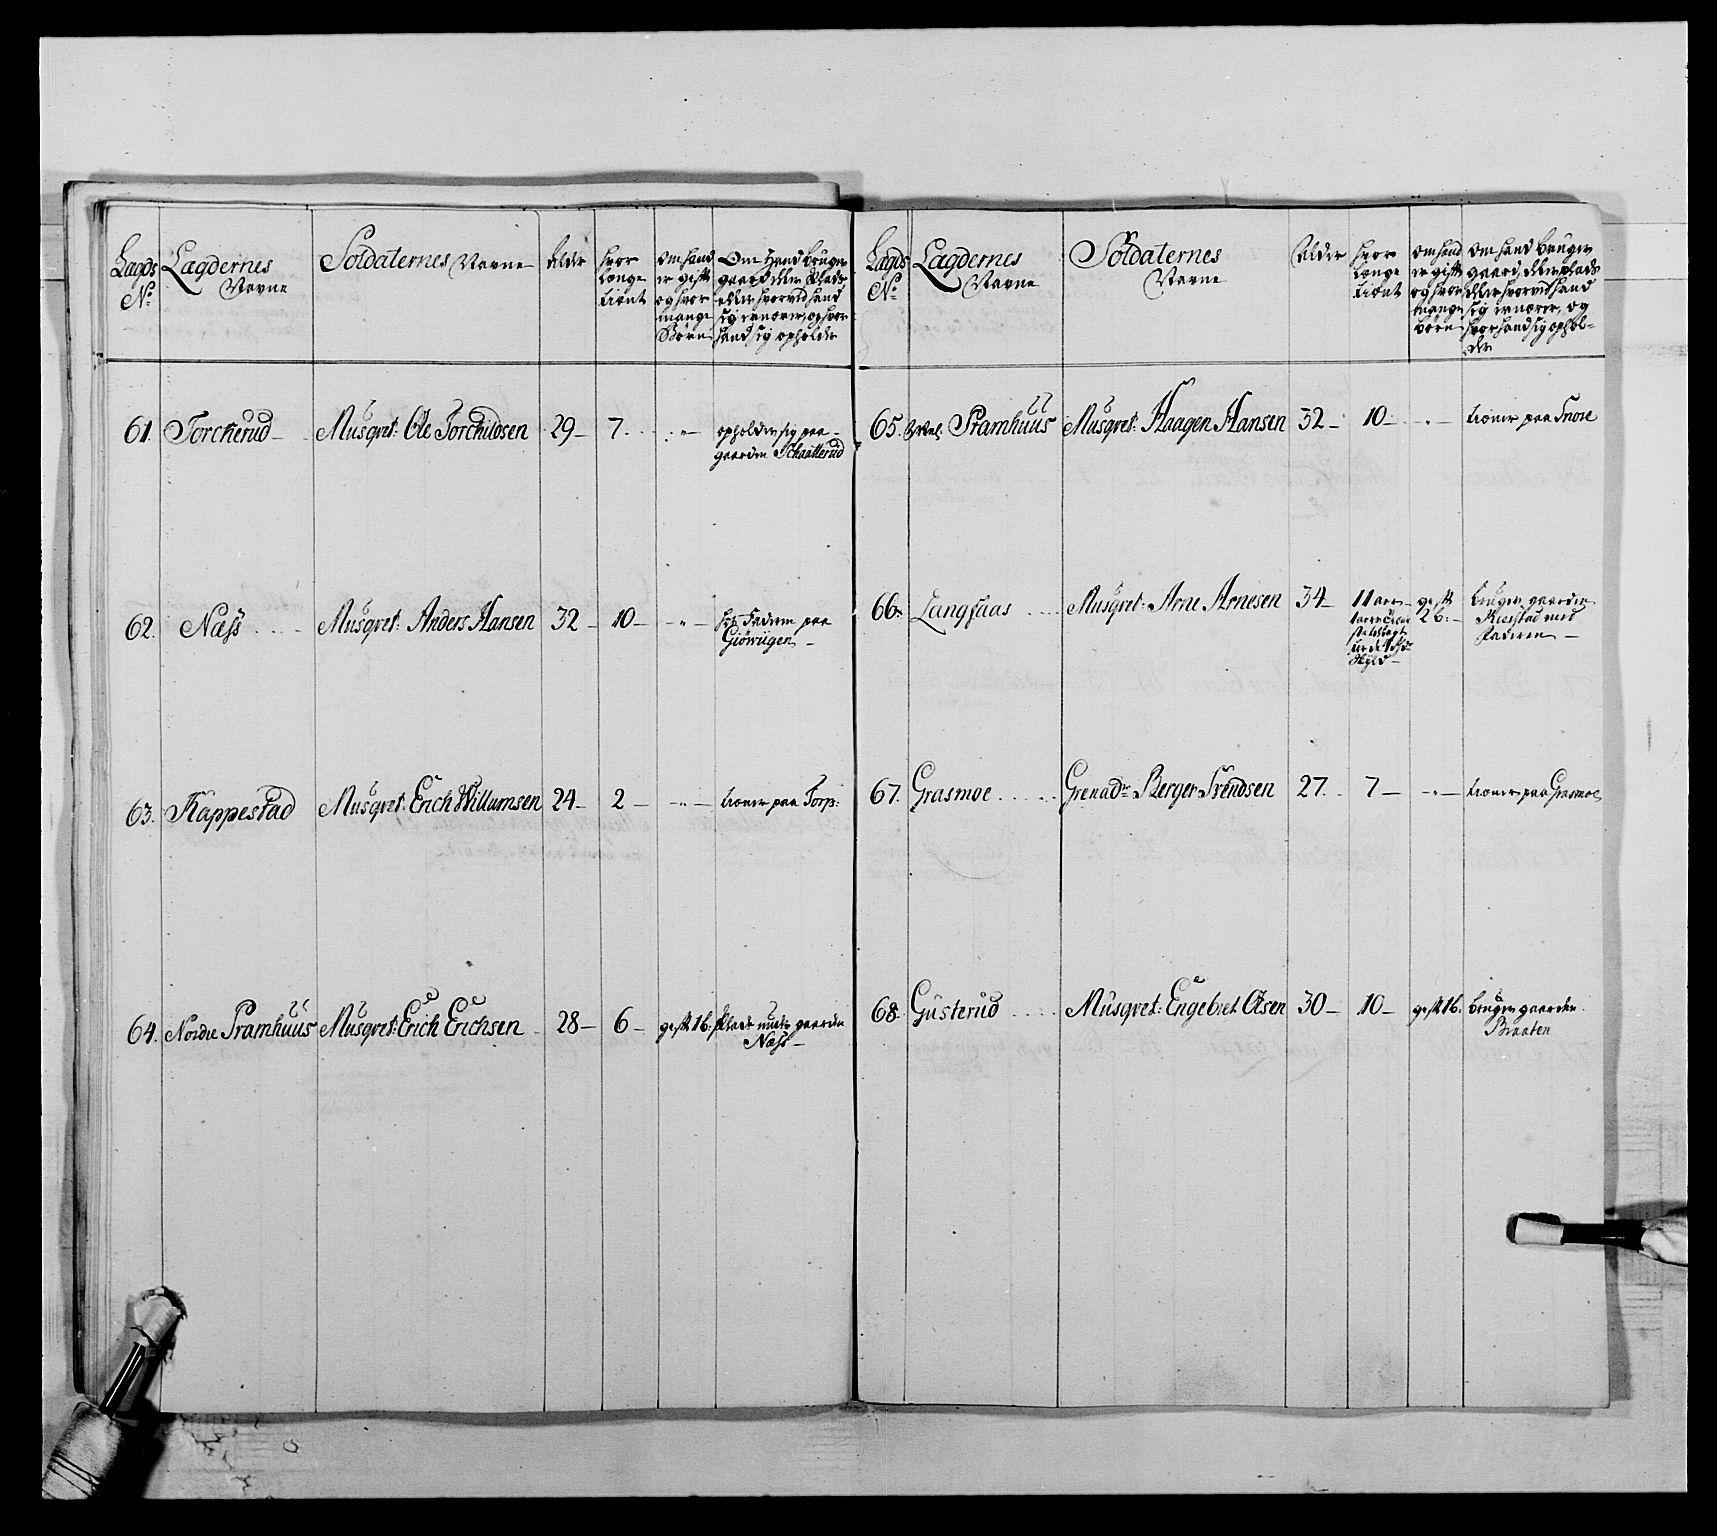 Lægds
No
Lægdernes
Navne
Soldaternes Navne
Alder
hvor
længe
tiënt
om hand
er gift
og hvor
mange
Børn
Om Hand bruger
gaard eller Plads
eller hvorved hand
sig ernærer, og hvor
hand sig opholder
61. Torckerud Musqret: Ole Torchildsen 29 7 " opholder sig paa
gaarden Schallerud
62. Næss Musqret: Anders Hansen 32 10 " hos Faderen paa
Giöwiigen
63. Kappestad Musqret: Erich Willumsen 24 2 " tiener paa Torp:
64. Nordre Pramhuus Musqret: Erich Erichsen 28 6 gift 1b: Plads under gaarden
Næss
Lægds
No
Lægdernes
Navne
Soldaternes
Navne
Alder
hvor
længe
tiënt
om hand
er gift
og hvor
mange
børn
om hand bruger
gaard, eller plads
eller hvorved hand
sig ernærer, og
hvor hand sig ophol-
der
65. Pramhuus Musqret: Haagen Hansen 32 10 " tiener paa Fnore
66. Langsaas Musqret: Arne Arnesen 34 11 aar gift
2b: bruger gaarden
med
Faderen
67. Grasmoe Grenadr Berger Svendsen 27 7 " tiener paa Grasmoe
68. Gusterud Musqret: Engebret Olsen 30 10 gift 1b: bruger gaarden
Braaten